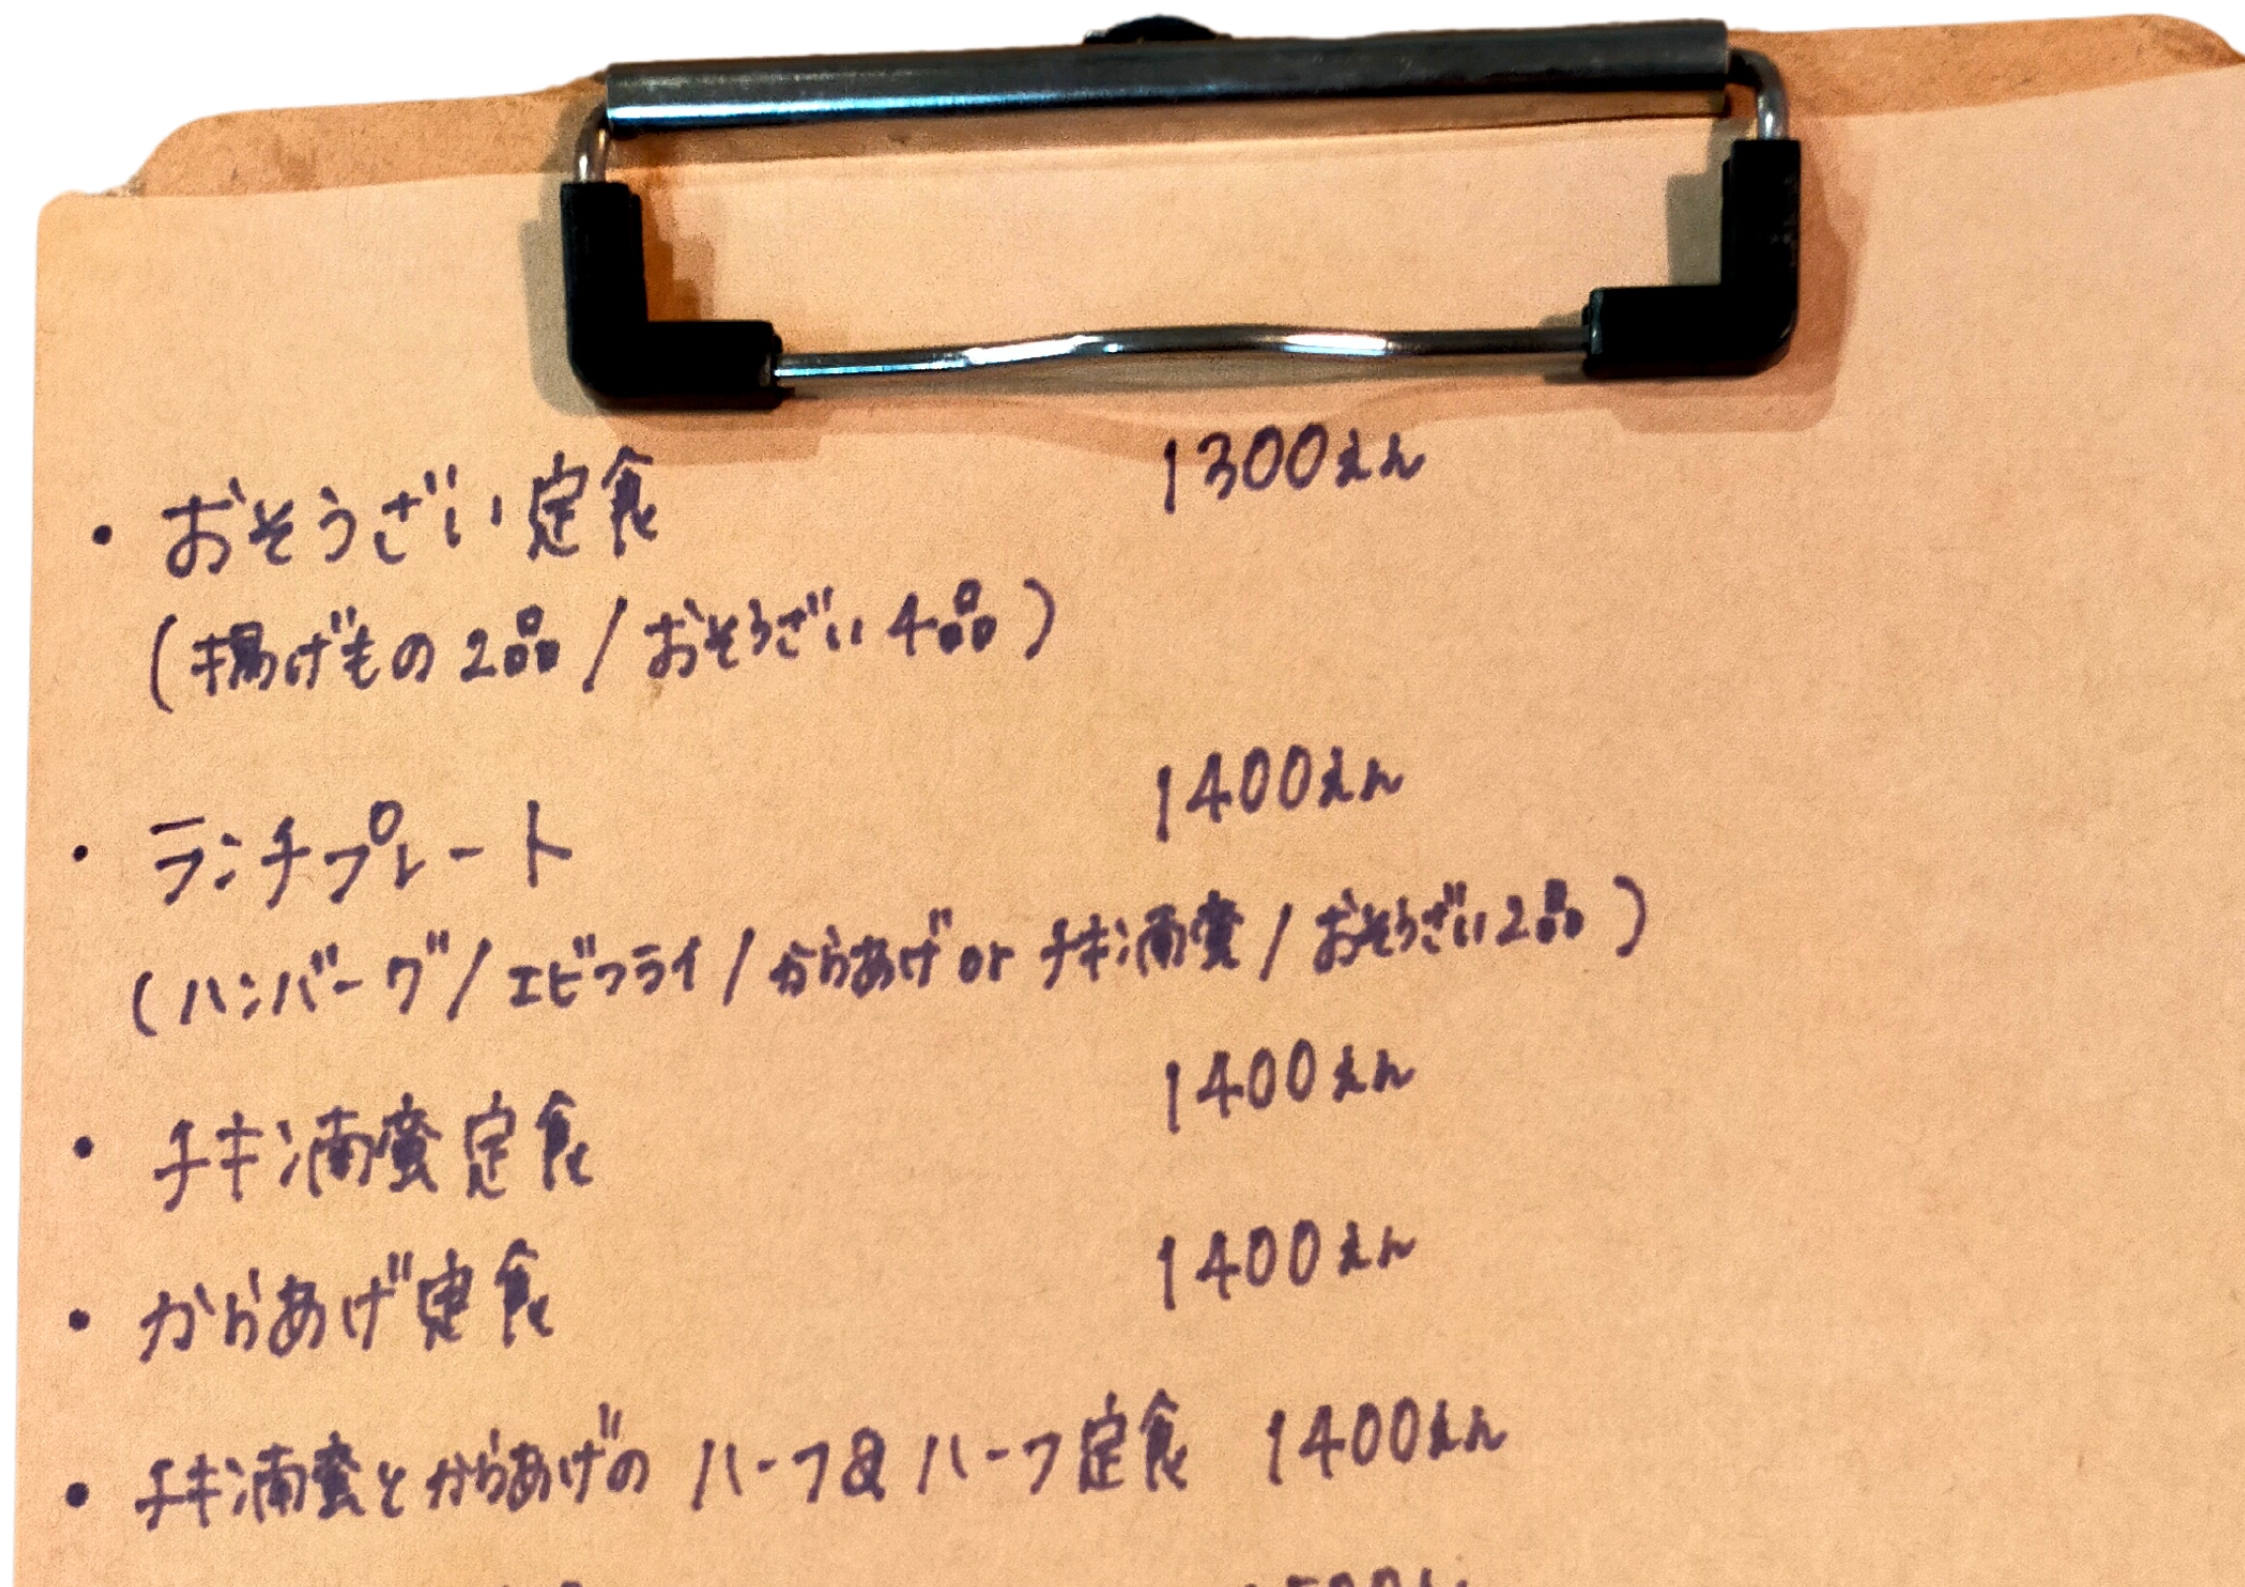 ・おそうざい定食 1300えん
(揚げもの2品/おそうざい4品)
・ランチプレート 1400えん
(ハンバーグ/エビフライ/からあげ or チキン南蛮/おそうざい2品)
・チキン南蛮定食 1400えん
・からあげ定食 1400えん
・チキン南蛮とからあげの ハーフ&ハーフ定食 1400えん